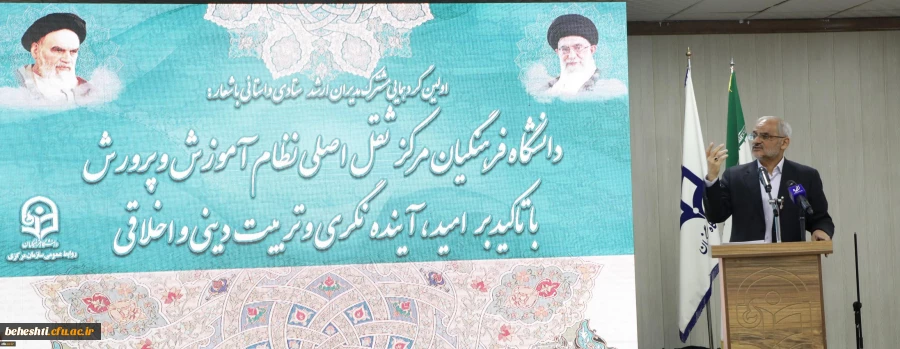 اولین گردهمایی مشترک مدیران ارشد ستادی و استانی با شعار:
دانشگاه فرهنگیان مرکز ثقل اصلی نظام آموزش و پرورش
با تاکید بر امید، آینده نگری و تربیت دینی و اخلاقی
دانشگاه فرهنگیان
روابط عمومی سازمان مرکزی
beheshti.cfu.ac.ir